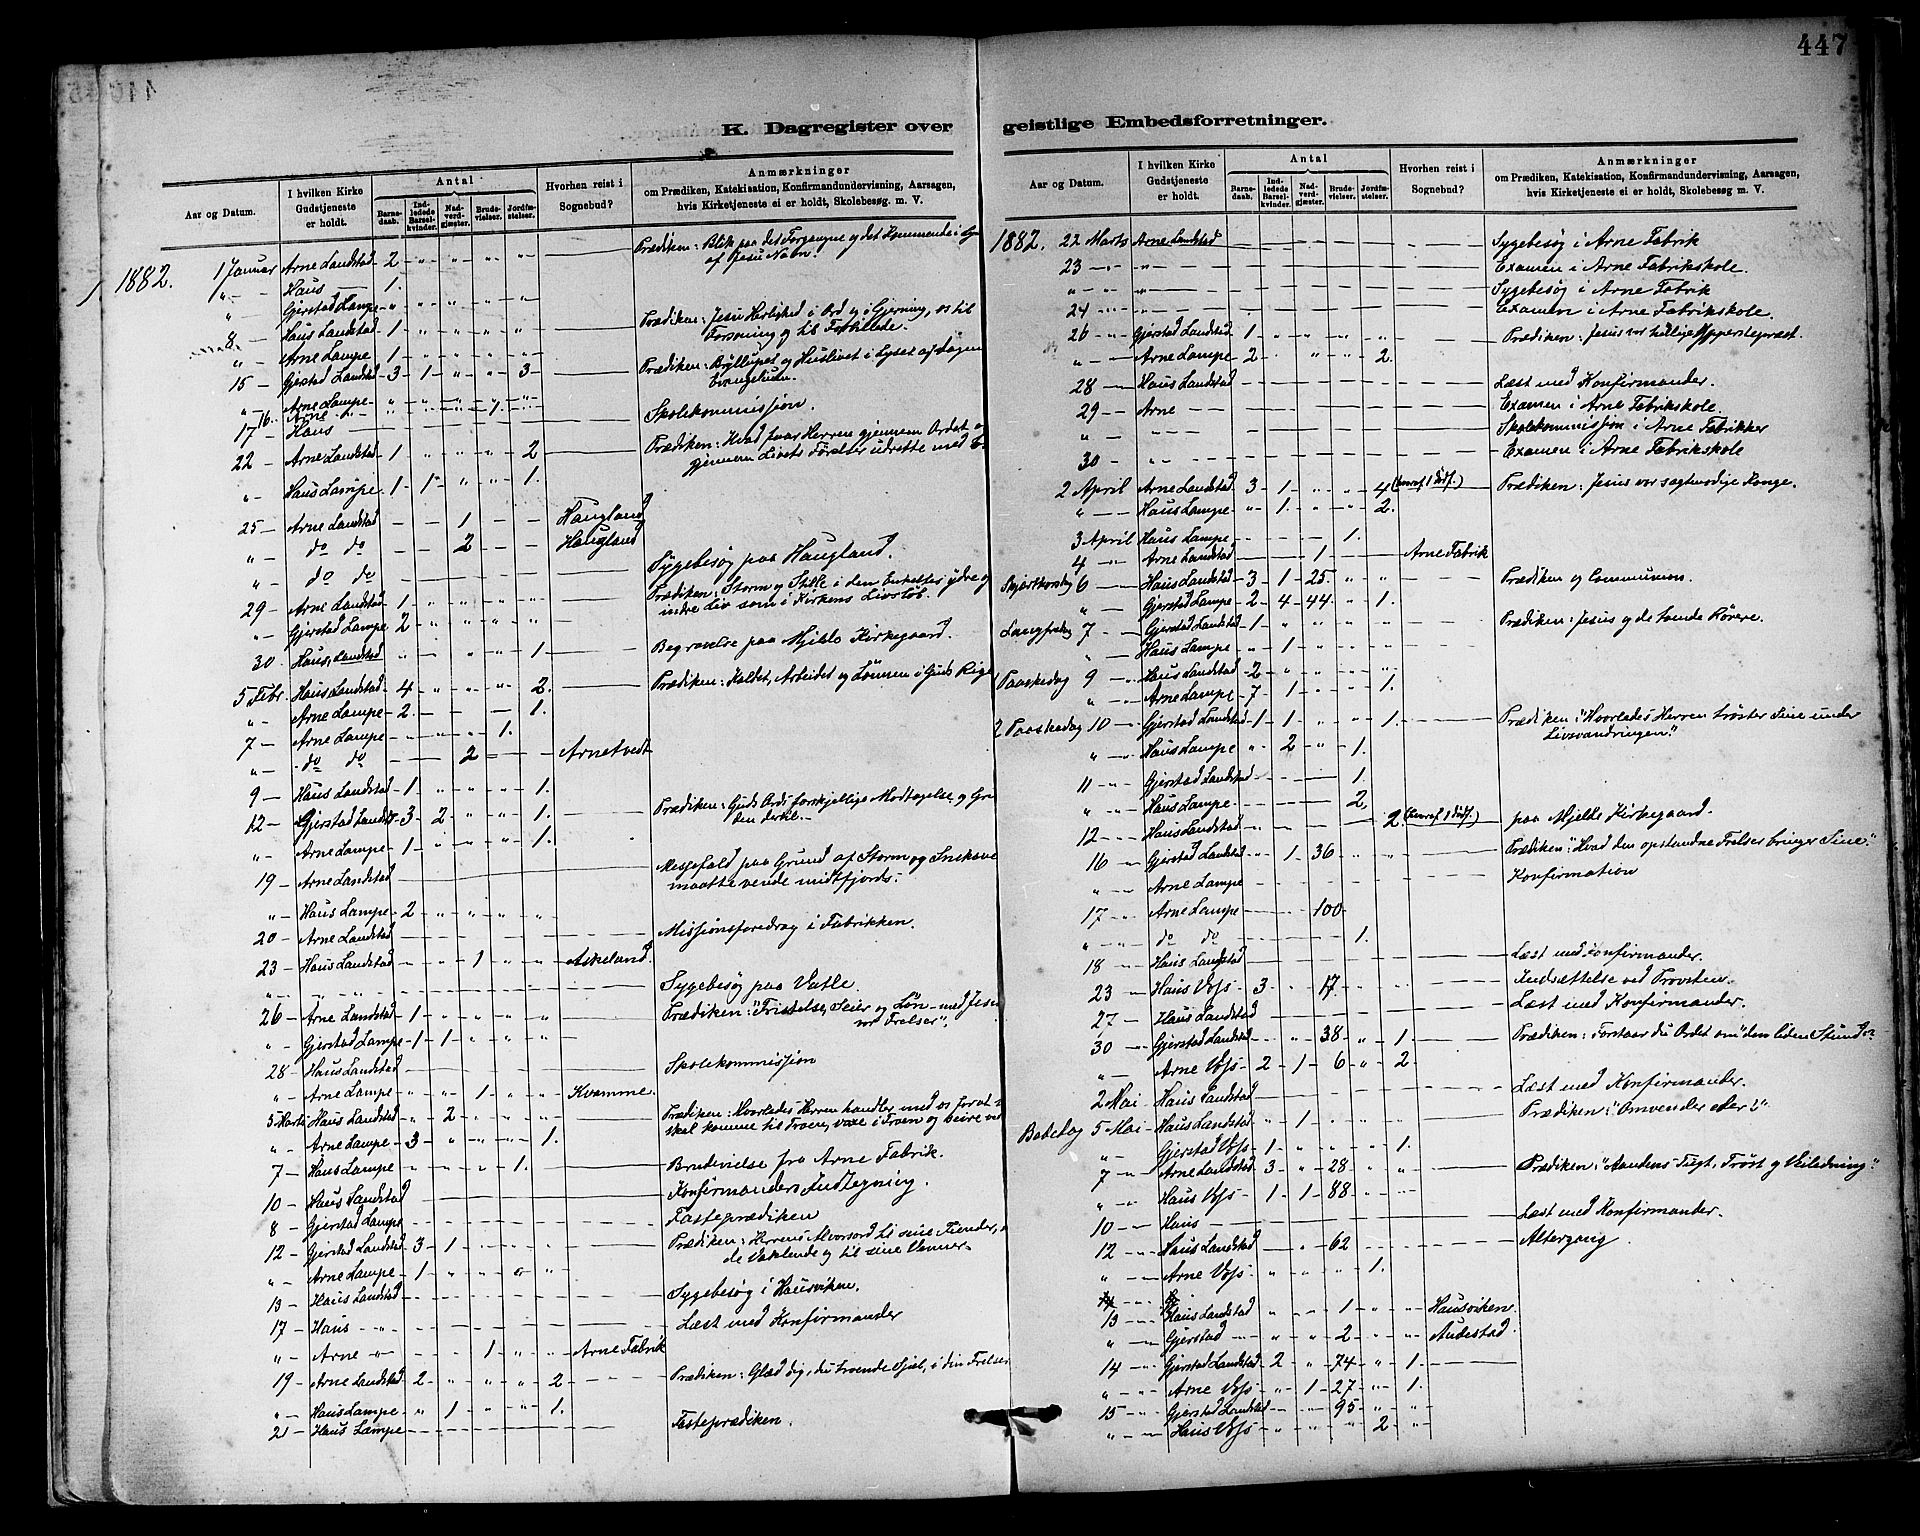 447
K. Dagregister over
geistlige Embedsforretninger.
Aar og Datum.
I hvilken Kirke Gudstjeneste er holdt.
Antal
Barnedaab.
Indledede Barselkvinder.
Nadverdgjæster.
Brudevielser.
Jordfæstelser.
Hvorhen reist i Sognebud?
Anmærkninger
om Prædiken, Katekisation, Konfirmandundervisning, Aarsagen,
hvis Kirketjeneste ei er holdt, Skolebesøg. m. V.
1882. 1 Januar Arne Landstad 2 " " " " Prædiken: Blik paa det Forgangne og det Kommende i
af Jesu Navn.
" Haus 1.
" Gjerstad Lampe " " " " "
8 Haus Landstad 1 " " " " Prædiken: Jesu Herlighed i Ord og i Gjerning, os til
Forsoning og til Forbillede.
" Arne Lampe 1 " " " "
15 Gjerstad Landstad 3 1 " " 3 Prædiken: Bryllupet og Huslivet i Lyset af Dagens
Evangelium.
" Arne Lampe " " " " "
16 Arne " 1.
17 Haus Skolekommission.
22 Arne Landstad 1 " " " 2 Prædiken: Hvad faar Herren gjennem Ordet og
gjennem Livets Førelser udrette med
" Haus Lampe 1 1 " " 1.
25 Arne Landstad 1 Haugland
" do do 2 Haugland
" do do Sygebesøg paa Haugland.
29 Arne Landstad 1 " " " " Prædiken: Storm og Stille i den Enkeltes ydre og
indre Liv som i Kirkens Livsløb.
" Gjerstad Lampe 2 " " " "
30 Haus Landstad " " " " 1 Begravelse paa Mjelde Kirkegaard.
5 Febr. Haus Landstad 4 " " " 2. Prædiken: Kaldet, Arbeidet og Lønnen i Guds Rige
" Arne Lampe 2. 1.
7 Arne Lampe 1.
" do do 2 Arnetvedt
9 Haus Landstad 1 " " " 1.
12 Gjerstad Landstad 3 2 " " 1. Prædiken: Guds Ords forskjellige Modtagelse og
" Arne Lampe 1 " " " 1.
19 Arne Landstad Messefald paa Grund af Storm og Snekave
maatte vende midtfjords.
" Haus Lampe 2 " " " "
20 Arne Landstad Missionsforedrag i Fabrikken.
23 Haus Landstad " " 1 " " Askeland.
" " " Sygebesøg paa Vatle.
26 Arne Landstad 1 " " " " Prædiken: "Fristelse, Seier og Løn med Jesu
vor Frelser".
" Gjerstad Lampe 1 1 " " "
28 Haus Landstad Skolekommission
" Arne Lampe " " 1 " " Kvamme.
5 Marts Haus Landstad " 2 " " " Prædiken: Hvorledes Herren handler med os for at vi
skal komme til Troen, voxe i Troen og blive ved
" Arne Lampe 3 " " " 1.
7 Haus Lampe " " " 1. Brudevielse fra Arne Fabrik.
10 Haus Landstad Konfirmanders Indtegning.
8 Gjerstad Lampe Fasteprædiken
12 Gjerstad Landstad 3 1 Prædiken: Herrens Alvorsord til sine Fiender,
de Vaklende og til sine Venner.
" Arne Lampe 1 " " "
13 Haus Landstad Sygebesøg i Hausviken.
17 Haus " Læst med Konfirmander
" Arne " 1 " " Arne Fabrik
19 Arne Landstad 2 " " " 2 Prædiken: Glæd dig, du troende Sjæl, i din Frelser
" Haus Lampe " 1 " " 1.
21 Haus Lampe Fasteprædiken.
Aar og Datum.
I hvilken Kirke Gudstjeneste er holdt.
Antal
Barnedaab.
Indledede Barselkvinder.
Nadverdgjæster.
Brudevielser.
Jordfæstelser.
Hvorhen reist i Sognebud?
Anmærkninger
om Prædiken, Katekisation, Konfirmandundervisning, Aarsagen,
hvis Kirketjeneste ei er holdt, Skolebesøg m. V.
1882. 22 Marts Arne Landstad Sygebesøg i Arne Fabrik
23 " " Examen i Arne Fabrikskole.
" " " Sygebesøg i Arne Fabrik
24 " " Examen i Arne Fabrikskole.
26 Gjerstad Landstad 1 " " " " Prædiken: Jesus vor hellige Ypperstepræst.
" Arne Lampe 2 " " 2.
28 Haus Landstad Læst med Konfirmander.
29 Arne Examen i Arne Fabrikskole.
" Skolekommission i Arne Fabrikker
30 " Examen i Arne Fabrikskole
2 April Arne Landstad 3 1 " " 4 (hvoraf 1 Dødf.) Prædiken: Jesus vor sagtmodige Konge.
" Haus Lampe " 1 " " 2.
3 April Haus Lampe 1.
4 Arne Landstad 1 Arne Fabrik
Skjærthorsdag 6 Haus Landstad 3 1 25. " " Prædiken og Communion.
" Gjerstad Lampe 2 4 44 " 1.
Langfredag 7 Gjerstad Landstad 1 " " " " Prædiken: Jesus og de tvende Røvere.
" Haus Lampe " 1 " " "
Paaskedag 9 Haus Landstad 2 " " " "
" Arne Lampe 7 1 " " 1.
2 Paaskedag 10 Gjerstad Landstad 1 1 " " 1. Prædiken: "Hvorledes Herren trøster Sine under
Livsvandringen."
" Haus Lampe " 2 " 1.
11 Gjerstad Landstad 1.
" Haus Lampe 2.
12 Haus Landstad 2. (hvoraf 1 Dødf.) paa Mjelde Kirkegaard.
16 Gjerstad Landstad " 1 36 " " Prædiken: "Hvad den opstandne Frelser bringer Sine."
" Arne Lampe Konfirmation
17 Arne Lampe 100
" do do 1.
18 Haus Landstad Læst med Konfirmander.
23 Haus Voss 3 " 17. Indsættelse ved Provsten.
27 Haus Landstad Læst med Konfirmander.
30 Gjerstad Landstad " 38 " 1 Prædiken: Forstaar du Ordet om "den liden Stund"?
" Arne Voss 2 1 6 " 2
2 Mai Haus Landstad Læst med Konfirmander.
Bededag 5 Mai Haus Landstad " 1 " " " Prædiken: "Omvender eder!".
" Gjerstad Voss 1 " " " 1.
7 Arne Landstad 3 " 28 " " Prædiken: "Aandens Tugt, Trøst og Veiledning".
" Haus Voss 1 1 88 " "
10 Haus Læst med Konfirmander.
12 Haus Landstad " 62 Altergang.
" Arne Voss " " " 1.
13 Haus Landstad " " 1 " " Hausviken
" Gjerstad " " " 2 " "
14 Gjerstad Landstad 2 " 74 " 1.
" Arne Voss " 1 27 " 1.
15 Gjerstad Landstad 95
" Haus Voss " " " 2 "